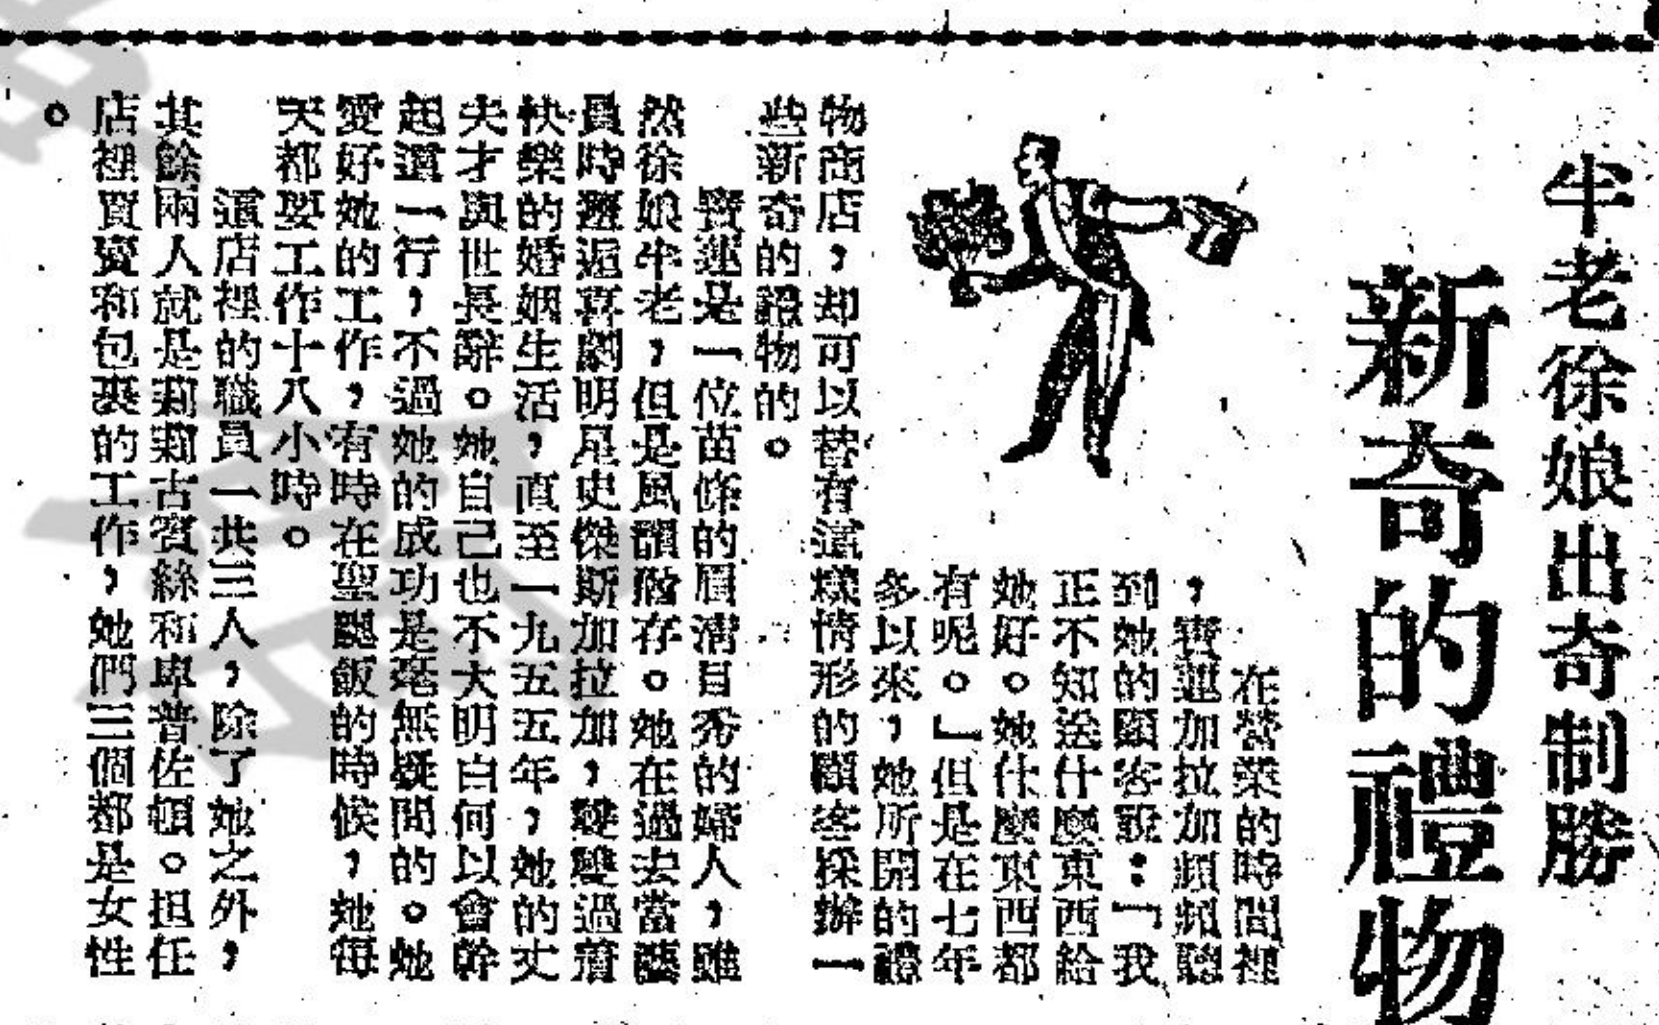 半老徐娘出奇制勝
新奇的禮物
在營業的時間裡
，寶蓮加拉加頻頻聽
到她的顧客說：「我
正不知送什麼東西給
她好。她什麼東西都
有呢。」但是在七年
多以來，她所開的禮
物商店，却可以替有這樣情形的顧客採辦一
些新奇的禮物的。
寶蓮是一位苗條的眉清目秀的婦人，雖
然徐娘半老，但是風韻猶存。她在過去當議
員時邂逅喜劇明星史傑斯加拉加，雙雙過着
快樂的婚姻生活，直至一九五五年，她的丈
夫才與世長辭。她自己也不大明白何以會幹
起這一行，不過她的成功是毫無疑問的。她
愛好她的工作，有時在聖誕飯的時候，她每
天都要工作十八小時。
這店裡的職員一共三人，除了她之外，
其餘兩人就是莉莉古賓絲和卑普佐頓。担任
店裡買賣和包裹的工作，她們三個都是女性
。